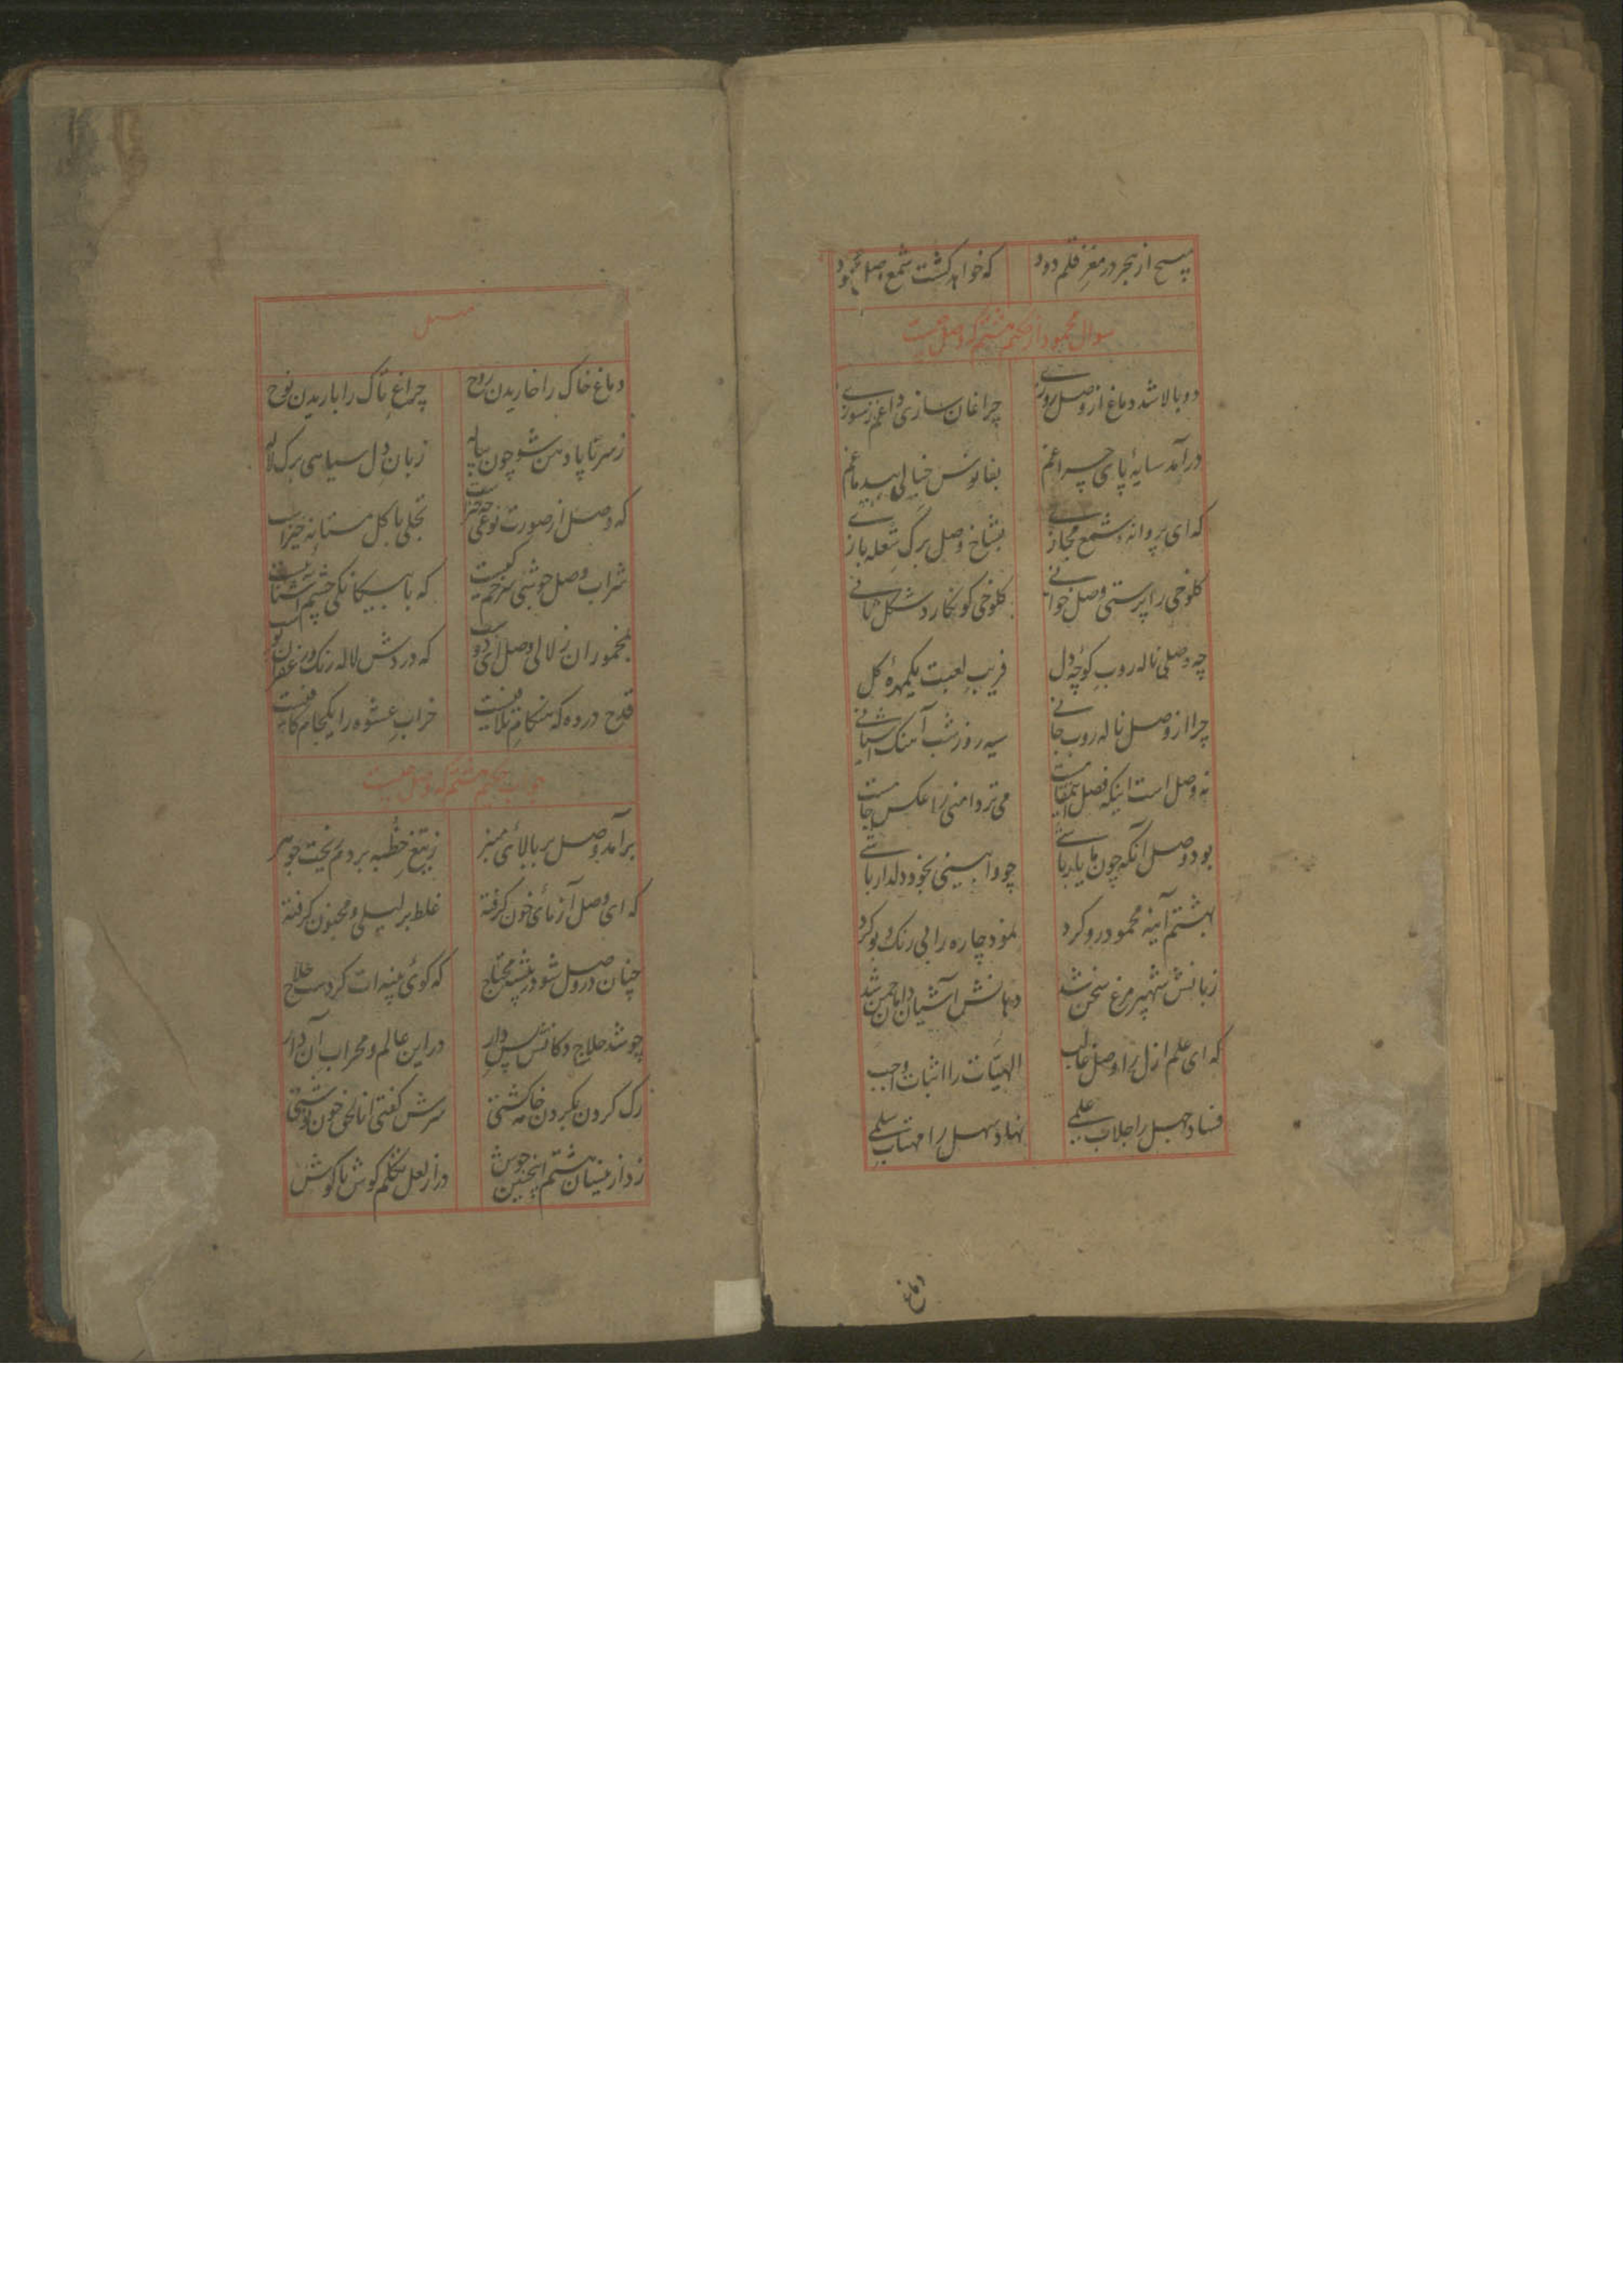 مپیچ از هجر در مغز قلم دود که خواهد گشت شمع وصل
سوال محمود از حکیم هشتم که وصل چیست
دو بالا شد دماغ از وصل روزی چراغان سازی داغم ز سوزی
درآمد سایهٔ پای چراغم بفانوس خیالی بیدماغم
که ای پروانهٔ شمع مجازی بشاخ وصل برگ شعله بازی
کلوخی را پرستی وصل خوانی کلوخی کو نگارد شکل مانی
چه وصلی ناله روب کوچهٔ دل فریب لعبت یکمهرهٔ گل
چرا از وصل ناله روب جانی سیه روز شب آهنگ
نه وصل است اینکه فصل می تردامنی را عکس جامست
بود وصل آنکه چون با یار باشی چو وابینی بخود دلدار باشی
بهشتم آینه محمود رو کرد نمود چاره را بی رنگ و بو کرد
زبانش شهپر مرغ سخن شد دهانش آشیان دامان چمن شد
که ای علم ازل را وصل غالب الهیات را اثبات واجب
فساد جهل را جلاب علمی نهاد سهل را مهتاب سلمی
دماغ
دماغ خاک را خاریدن روح چراغ تاک را باریدن نوح
ز سر تا پا دهن شو چون پیاله زبان دل سیاهی برگ لاله
که وصل از صورت نوعی چه چیز است تجلی با گل مستانه خیز است
شراب وصل جوشی سرخم کیست که با بیگانگی چشم آشنا نیست
بمخموران زلالی وصل ای دوست که دردش لاله رنگ و زعفران بوست
قدح در ده که هنگام تلافیست خراب عشوه را یکجام کافیست
جواب حکیم هشتم که وصل چیست
برآمد وصل بر بالای منبر ز تیغ خطبه بر دم ریخت جوهر
که ای وصل آزمای خون گرفته غلط بر لیلی و مجنون گرفته
چنان در وصل شو در پنبه محتاج که گوئی پنبه ات کردست حلاج
چو شد حلاج دکانش پس دار در این عالم و محراب آن دار
رگ گردن بگردن سرش گفتی انا الحق خون
زد از مینای هشتم اینچنین جوش در از لعل تکلم گوش تا گوش